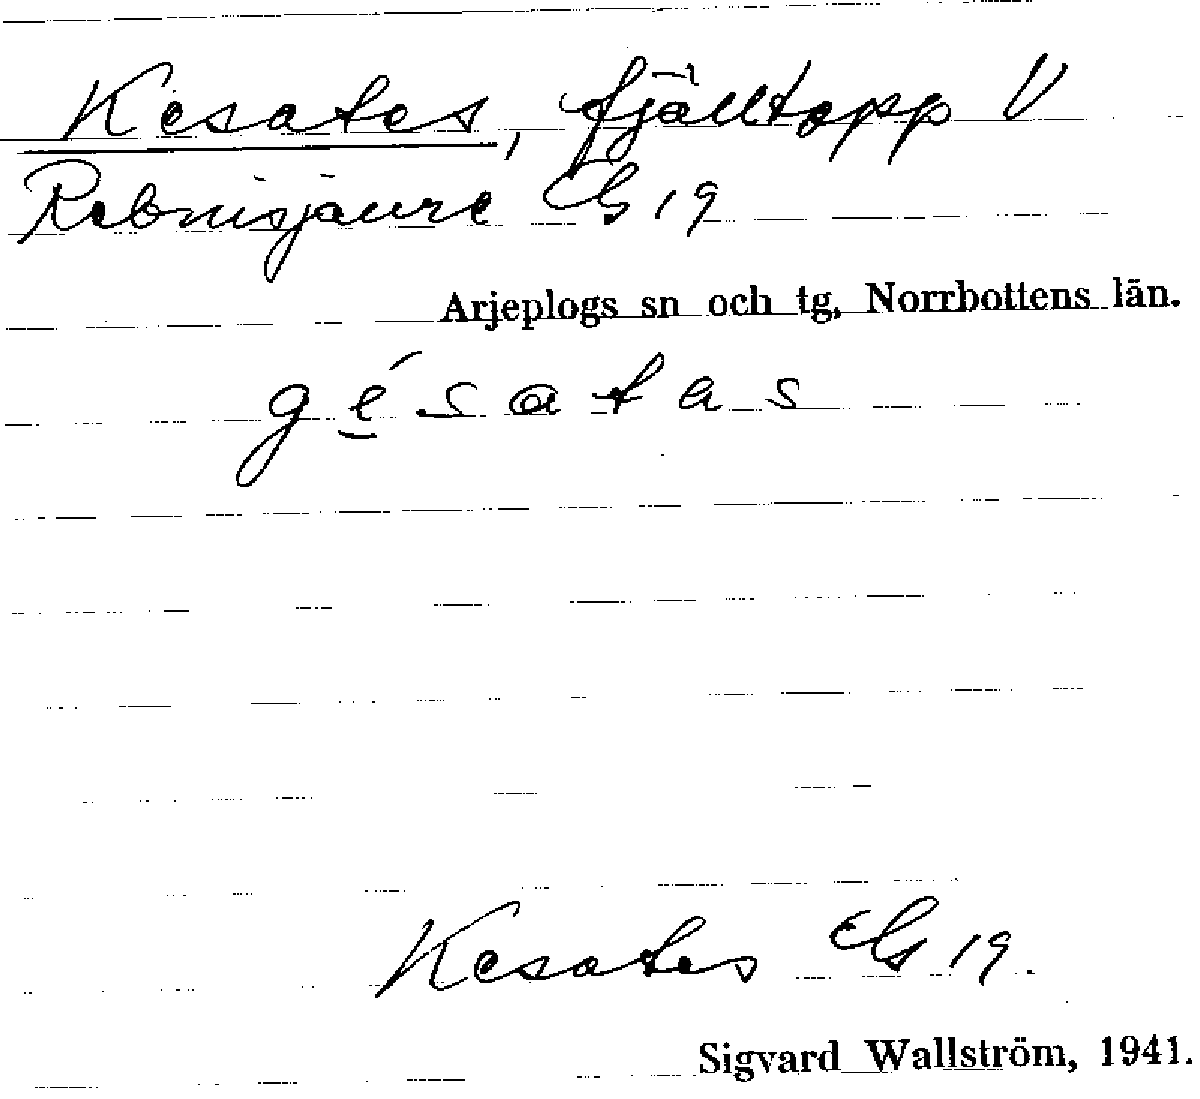 Kesates, fjälltopp V
Rebnisjaure GS 19
Arjeplogs sn och tg, Norrbottens län.
gésatas
Kesates GS 19.
Sigvard Wallström, 1941.